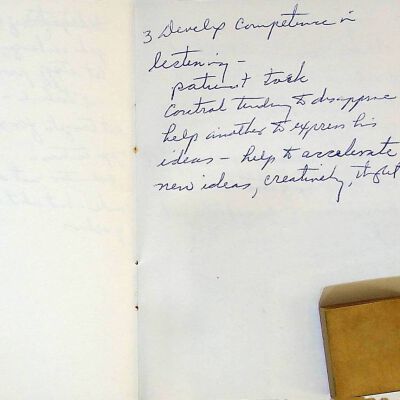 3 Develop Competence in
listening -
patient task
Control tendency to disapprove
help another to express his
ideas - help to accelerate
new ideas, creativity,